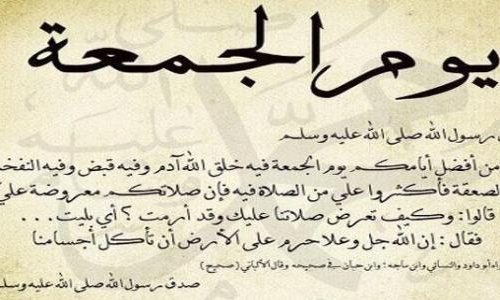 يوم الجمعة
رسول الله صلى الله عليه وسلم
من أفضل أيامكم يوم الجمعة فيه خلق الله آدم وفيه قبض وفيه النفخة
الصعقة فأكثروا علي من الصلاة فيه فإن صلاتكم معروضة علي
قالوا: وكيف تعرض صلاتنا عليك وقد أرمت ؟ أي بليت...
فقال : إن الله جل وعلا حرم على الأرض أن تأكل أجسامنا
أبو داود والنسائي وابن ماجه ؛ وابن حبان في صحيحه وقال الألباني ( صحيح )
صدق رسول الله صلى الله عليه وسلم